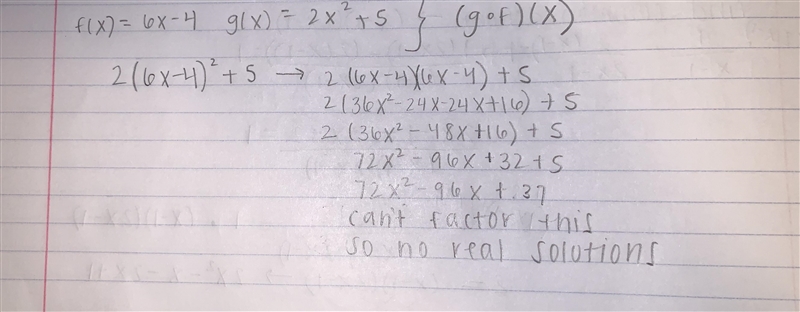 f(x) = 6x-4 g(x) = 2x² + 5 } (gof)(x)
2(6x-4)² + 5 → 2(6x-4)(6x-4) + 5
2(36x²-24x-24x+16) + 5
2(36x²-48x+16) + 5
72x² - 96x + 32 + 5
72x² - 96x + 37
can't factor this
so no real solutions